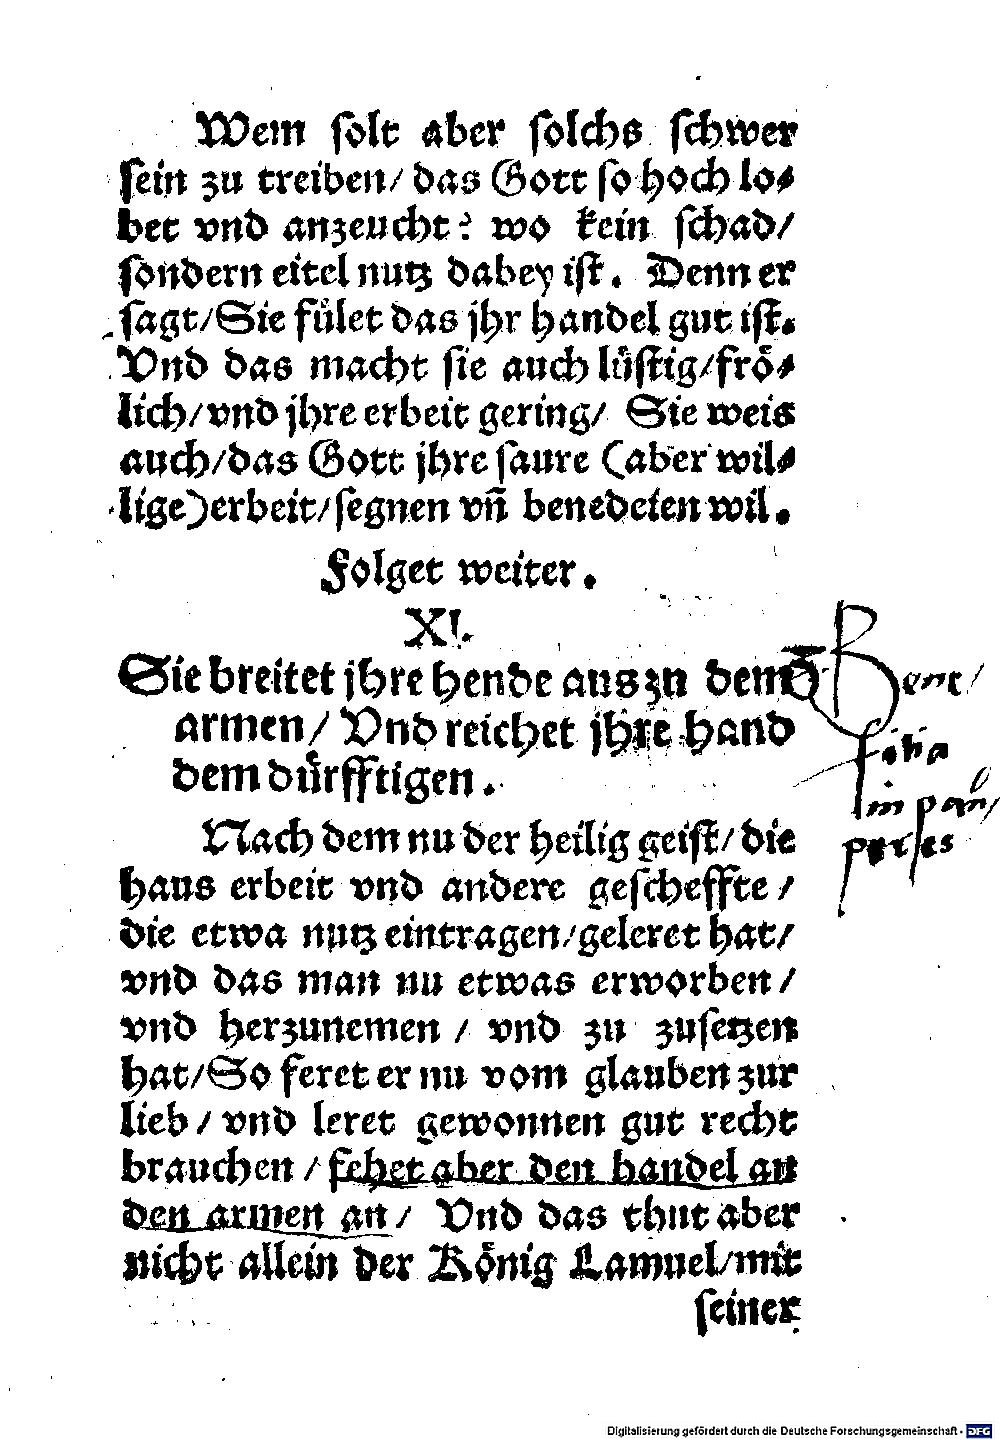 Wem solt aber solchs schwer
sein zu treiben/ das Gott so hoch lo⸗
bet vnd anzeucht? wo kein schad/
sondern eitel nutz dabey ist. Denn er
sagt/Sie fület das jhr handel gut ist.
Vnd das macht sie auch lüstig/frö⸗
lich/vnd jhre erbeit gering/ Sie weis
auch/das Gott jhre saure (aber wil⸗
lige)erbeit/segnen vñ benedeien wil.
Folget weiter.
XI.
Sie breitet jhre hende aus zu dem
armen/ Vnd reichet jhre hand
dem dürfftigen.
in pau/
peres
Nach dem nu der heilig geist/ die
haus erbeit vnd andere gescheffte/
die etwa nutz eintragen/geleret hat/
vnd das man nu etwas erworben/
vnd herzunemen / vnd zu zusetzen
hat/So feret er nu vom glauben zur
lieb/ vnd leret gewonnen gut recht
brauchen/ fehet aber den handel an
den armen an/ Vnd das thut aber
nicht allein der König Lamuel/mit
seiner
Digitalisierung gefördert durch die Deutsche Forschungsgemeinschaft - DFG